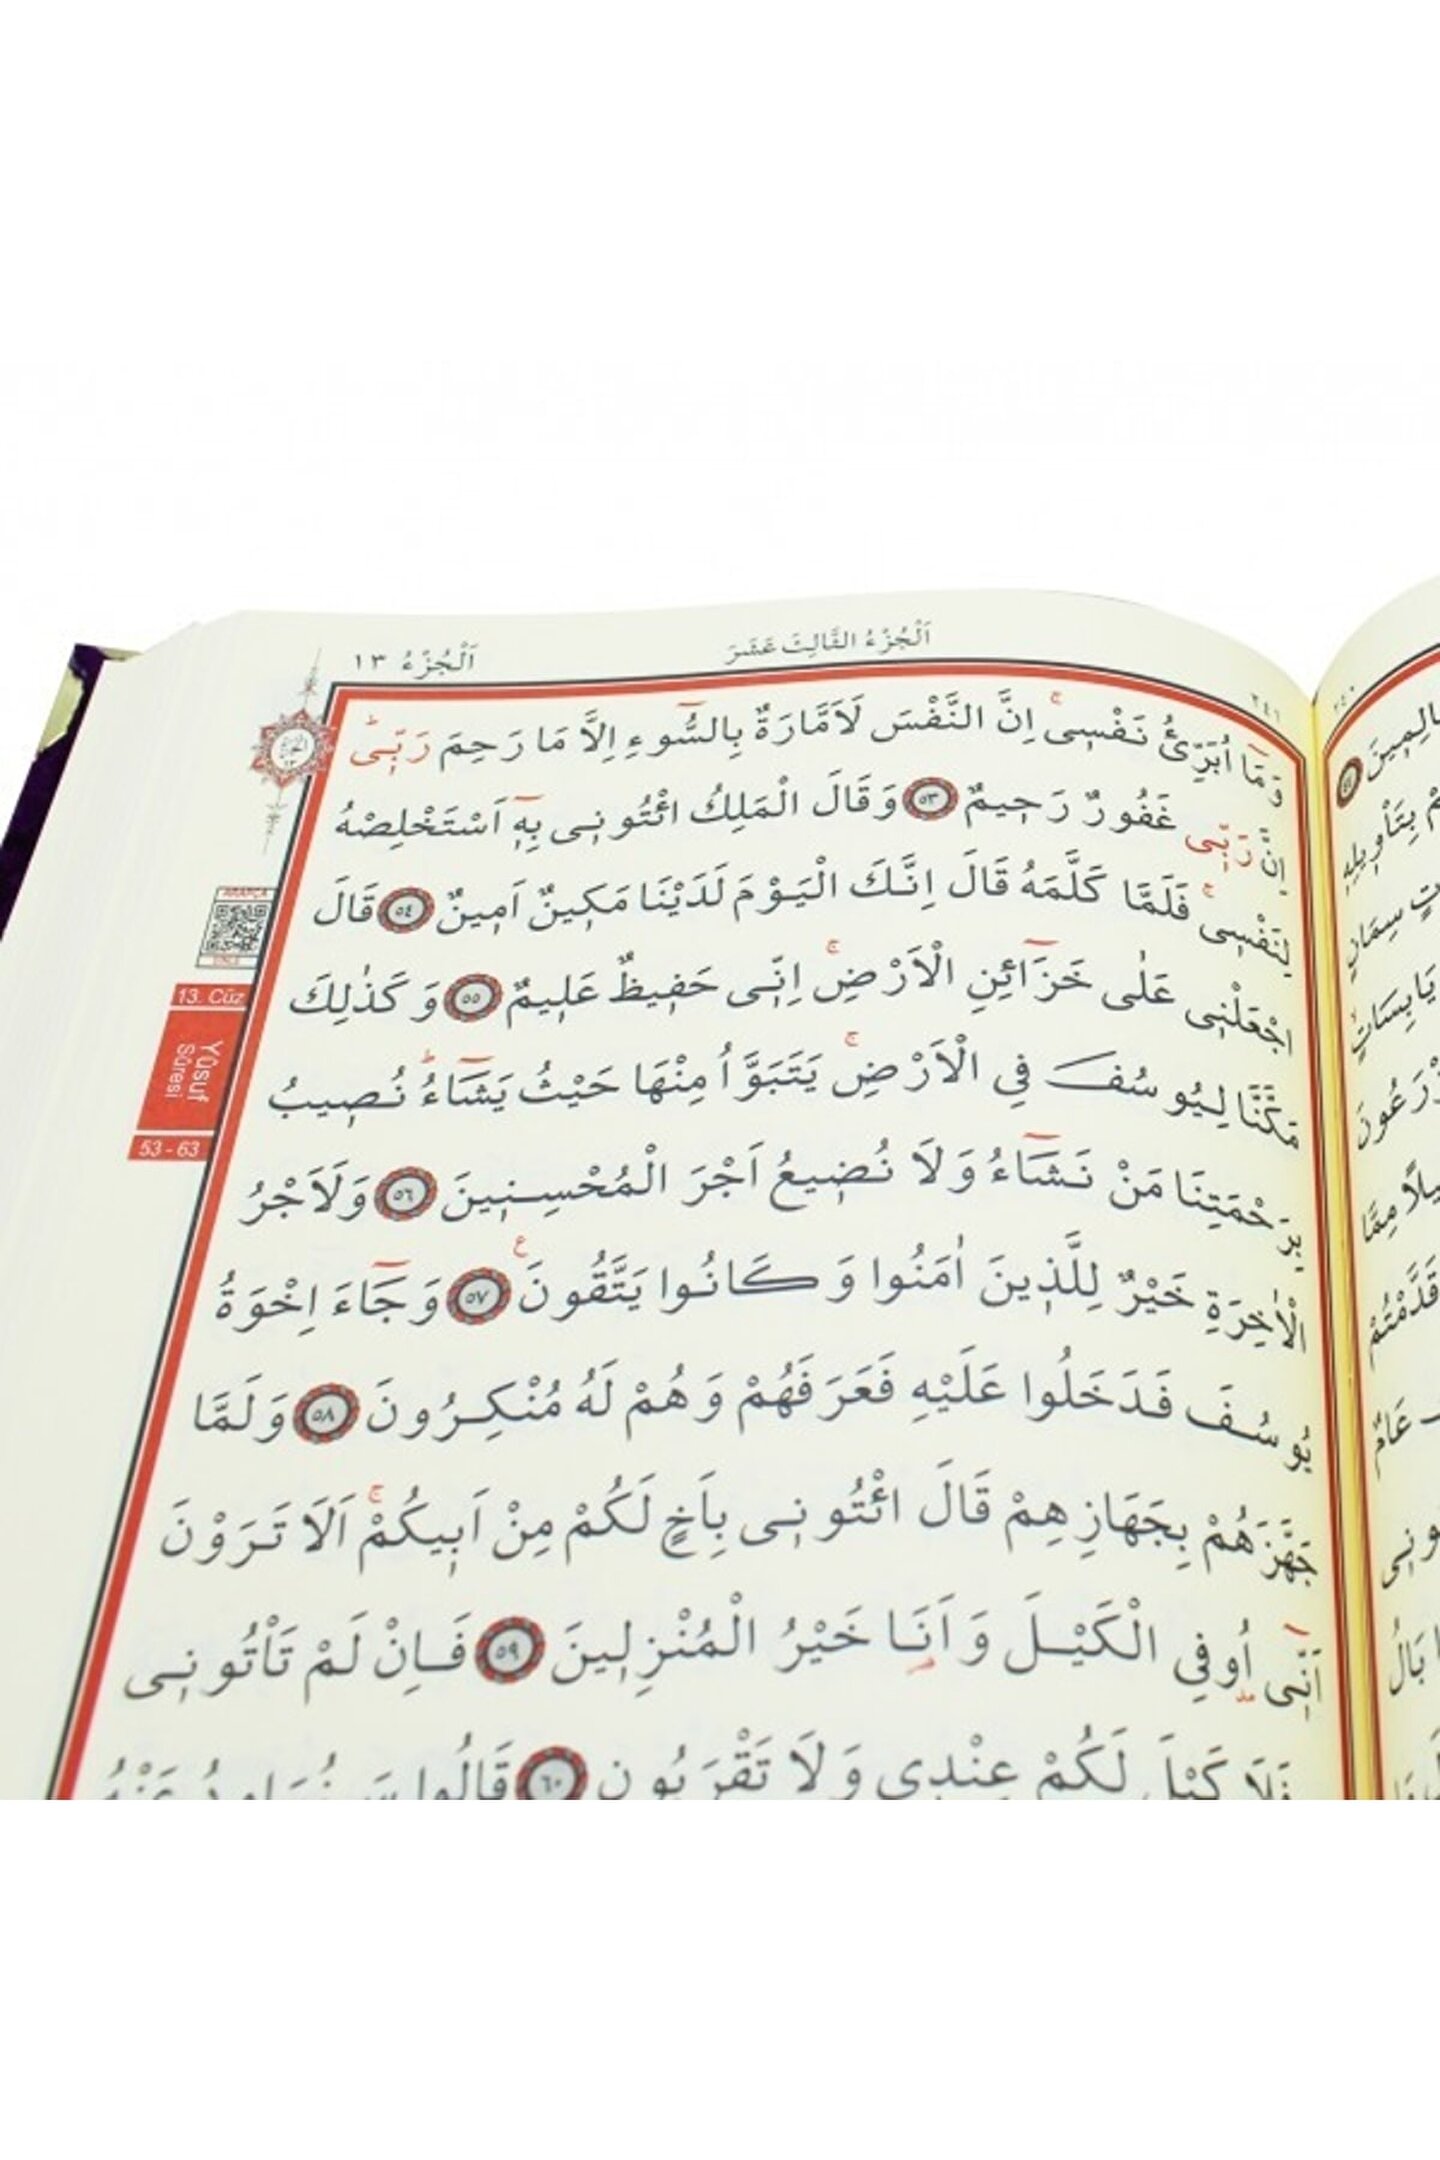 اَلْجُزْءُ الثَّالِثَ عَشَرَ
اَلْجُزْءُ ١٣
وَمَٓا اُبَرِّئُ نَفْسٖىۚ اِنَّ النَّفْسَ لَاَمَّارَةٌ بِالسُّٓوءِ اِلَّا مَا رَحِمَ رَبّٖىؕ
اِنَّ رَبّٖى غَفُورٌ رَحٖيمٌ ٥٣ وَقَالَ الْمَلِكُ ائْتُونٖى بِهٖٓ اَسْتَخْلِصْهُ
لِنَفْسٖىۚ فَلَمَّا كَلَّمَهُ قَالَ اِنَّكَ الْيَوْمَ لَدَيْنَا مَكٖينٌ اَمٖينٌ ٥٤ قَالَ
اجْعَلْنٖى عَلٰى خَزَٓائِنِ الْاَرْضِۚ اِنّٖى حَفٖيظٌ عَلٖيمٌ ٥٥ وَكَذٰلِكَ
مَكَّنَّا لِيُوسُفَ فِي الْاَرْضِۚ يَتَبَوَّاُ مِنْهَا حَيْثُ يَشَٓاءُؕ نُصٖيبُ
بِرَحْمَتِنَا مَنْ نَشَٓاءُ وَلَا نُضٖيعُ اَجْرَ الْمُحْسِنٖينَ ٥٦ وَلَاَجْرُ
الْاٰخِرَةِ خَيْرٌ لِلَّذٖينَ اٰمَنُوا وَكَانُوا يَتَّقُونَ ع ٥٧ وَجَٓاءَ اِخْوَةُ
يُوسُفَ فَدَخَلُوا عَلَيْهِ فَعَرَفَهُمْ وَهُمْ لَهُ مُنْكِرُونَ ٥٨ وَلَمَّا
جَهَّزَهُمْ بِجَهَازِهِمْ قَالَ ائْتُونٖى بِاَخٍ لَكُمْ مِنْ اَبٖيكُمْۚ اَلَا تَرَوْنَ
اَنّٖٓى اُوفِي الْكَيْلَ وَاَنَا خَيْرُ الْمُنْزِلٖينَ ٥٩ فَاِنْ لَمْ تَاْتُونٖى
فَلَا كَيْلَ لَكُمْ عِنْدٖى وَلَا تَقْرَبُونِ ٦٠ قَالُوا سَنُرَاوِدُ عَنْهُ
13. Cüz
Yûsuf
Sûresi
53 - 63